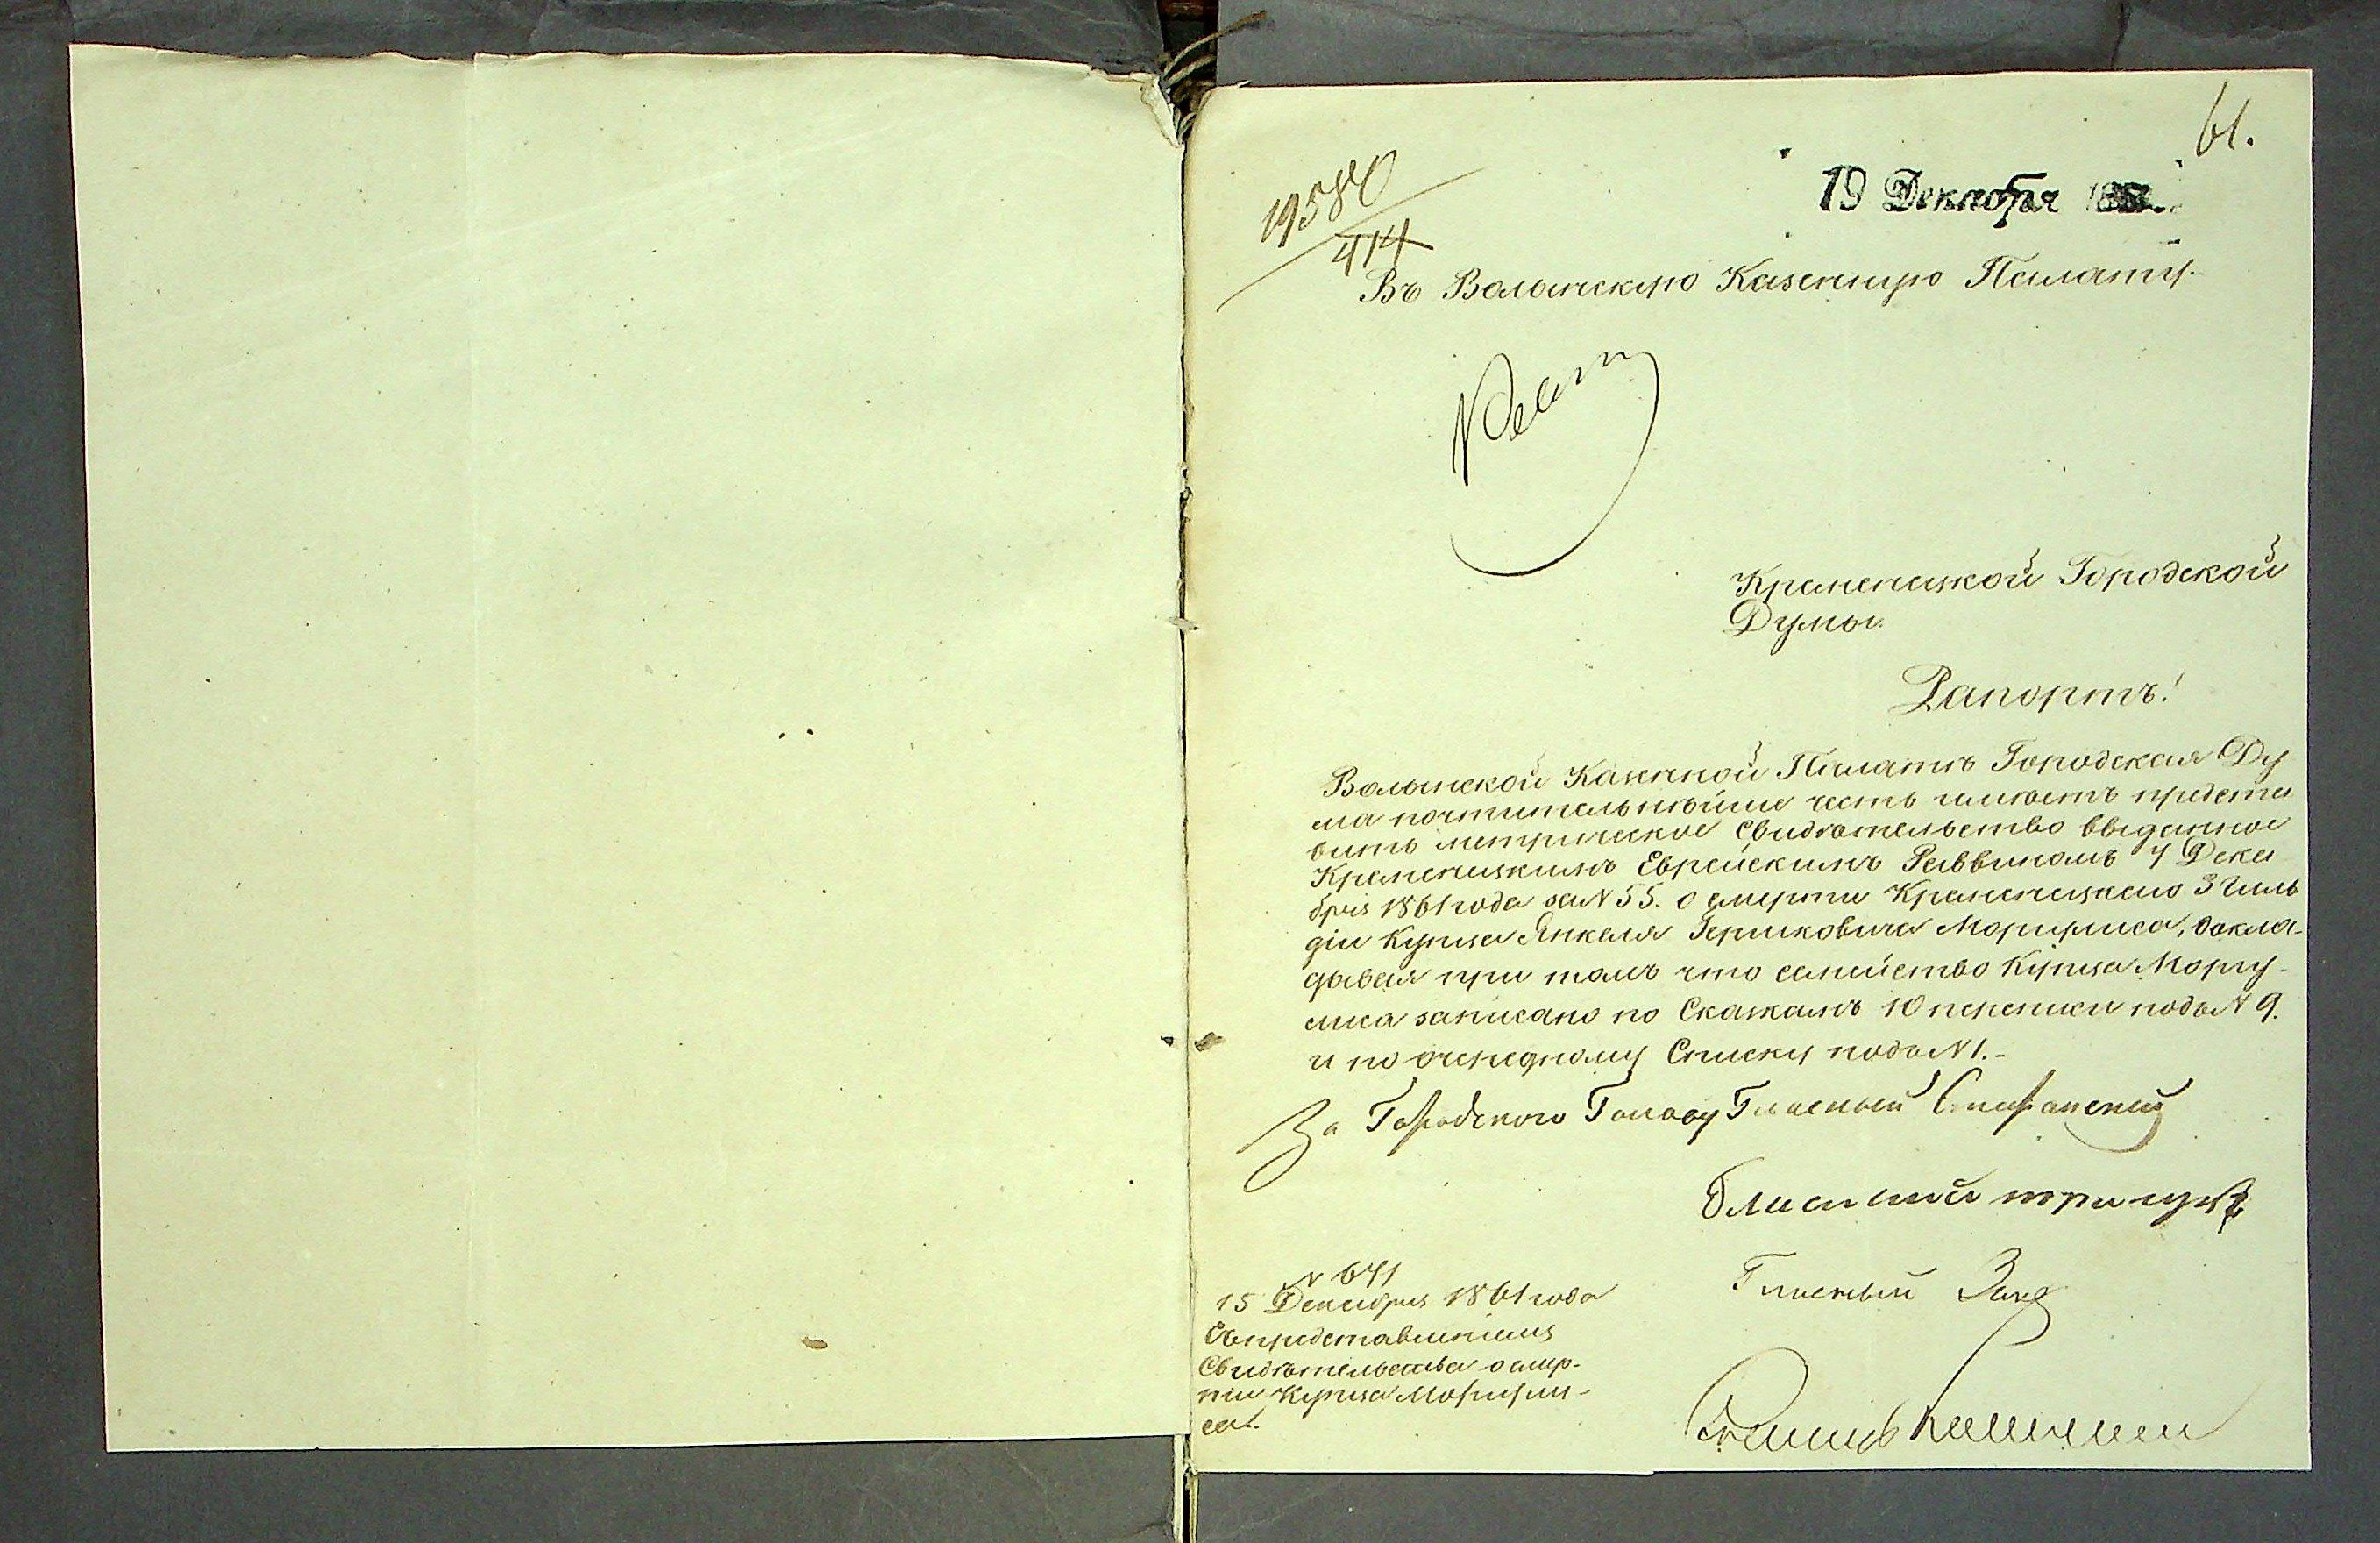 61.
19580
414
19 Декабря
Въ Волынскую Казенную Палату.
Кременецкой Городской
Думы.
Рапортъ!
Волынской Казенной Палатѣ Городская Ду
ма почтительнѣйше честь имѣетъ предста
вить метрическое Свидѣтельство выданное
Кременецкимъ Еврейскимъ Раввиномъ 4 Дека
бря 1861 года за N 55. о смерти Кременецкаго 3 Гиль
діи Купца Янкеля Гершковича Моргулиса, докла-
дывая при томъ что семейство Купца Моргу-
лиса записано по Сказкамъ 10 переписи подъ N 9.
и по очередному Списку подъ N 1.-
За Городского Голову Гласный
Гласный
Гласный
N 641
15 Декабря 1861 года
Съ представленіемъ
Свидѣтельства о смер-
ти Купца Моргули-
са.